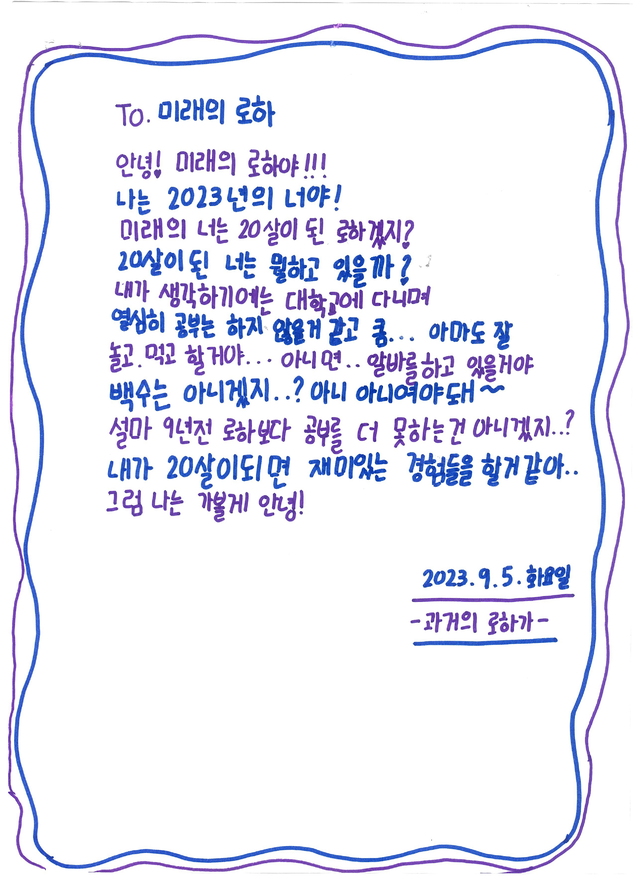 To. 미래의 로하
안녕! 미래의 로하야!!!
나는 2023년의 너야!
미래의 너는 20살이 된 로하겠지?
20살이 된 너는 뭘하고 있을까?
내가 생각하기에는 대학교에 다니며
열심히 공부는 하지 않을거 같고 쿰... 아마도 잘
놀고.먹고 할거야... 아니면.. 알바를하고 있을거야
백수는 아니겠지..? 아니 아니여야돼~
설마 9년전 로하보다 공부를 더 못하는건 아니겠지..?
내가 20살이되면 재미있는 경험들을 할거같아..
그럼 나는 가볼게 안녕!
2023.9.5.화요일
-과거의 로하가-